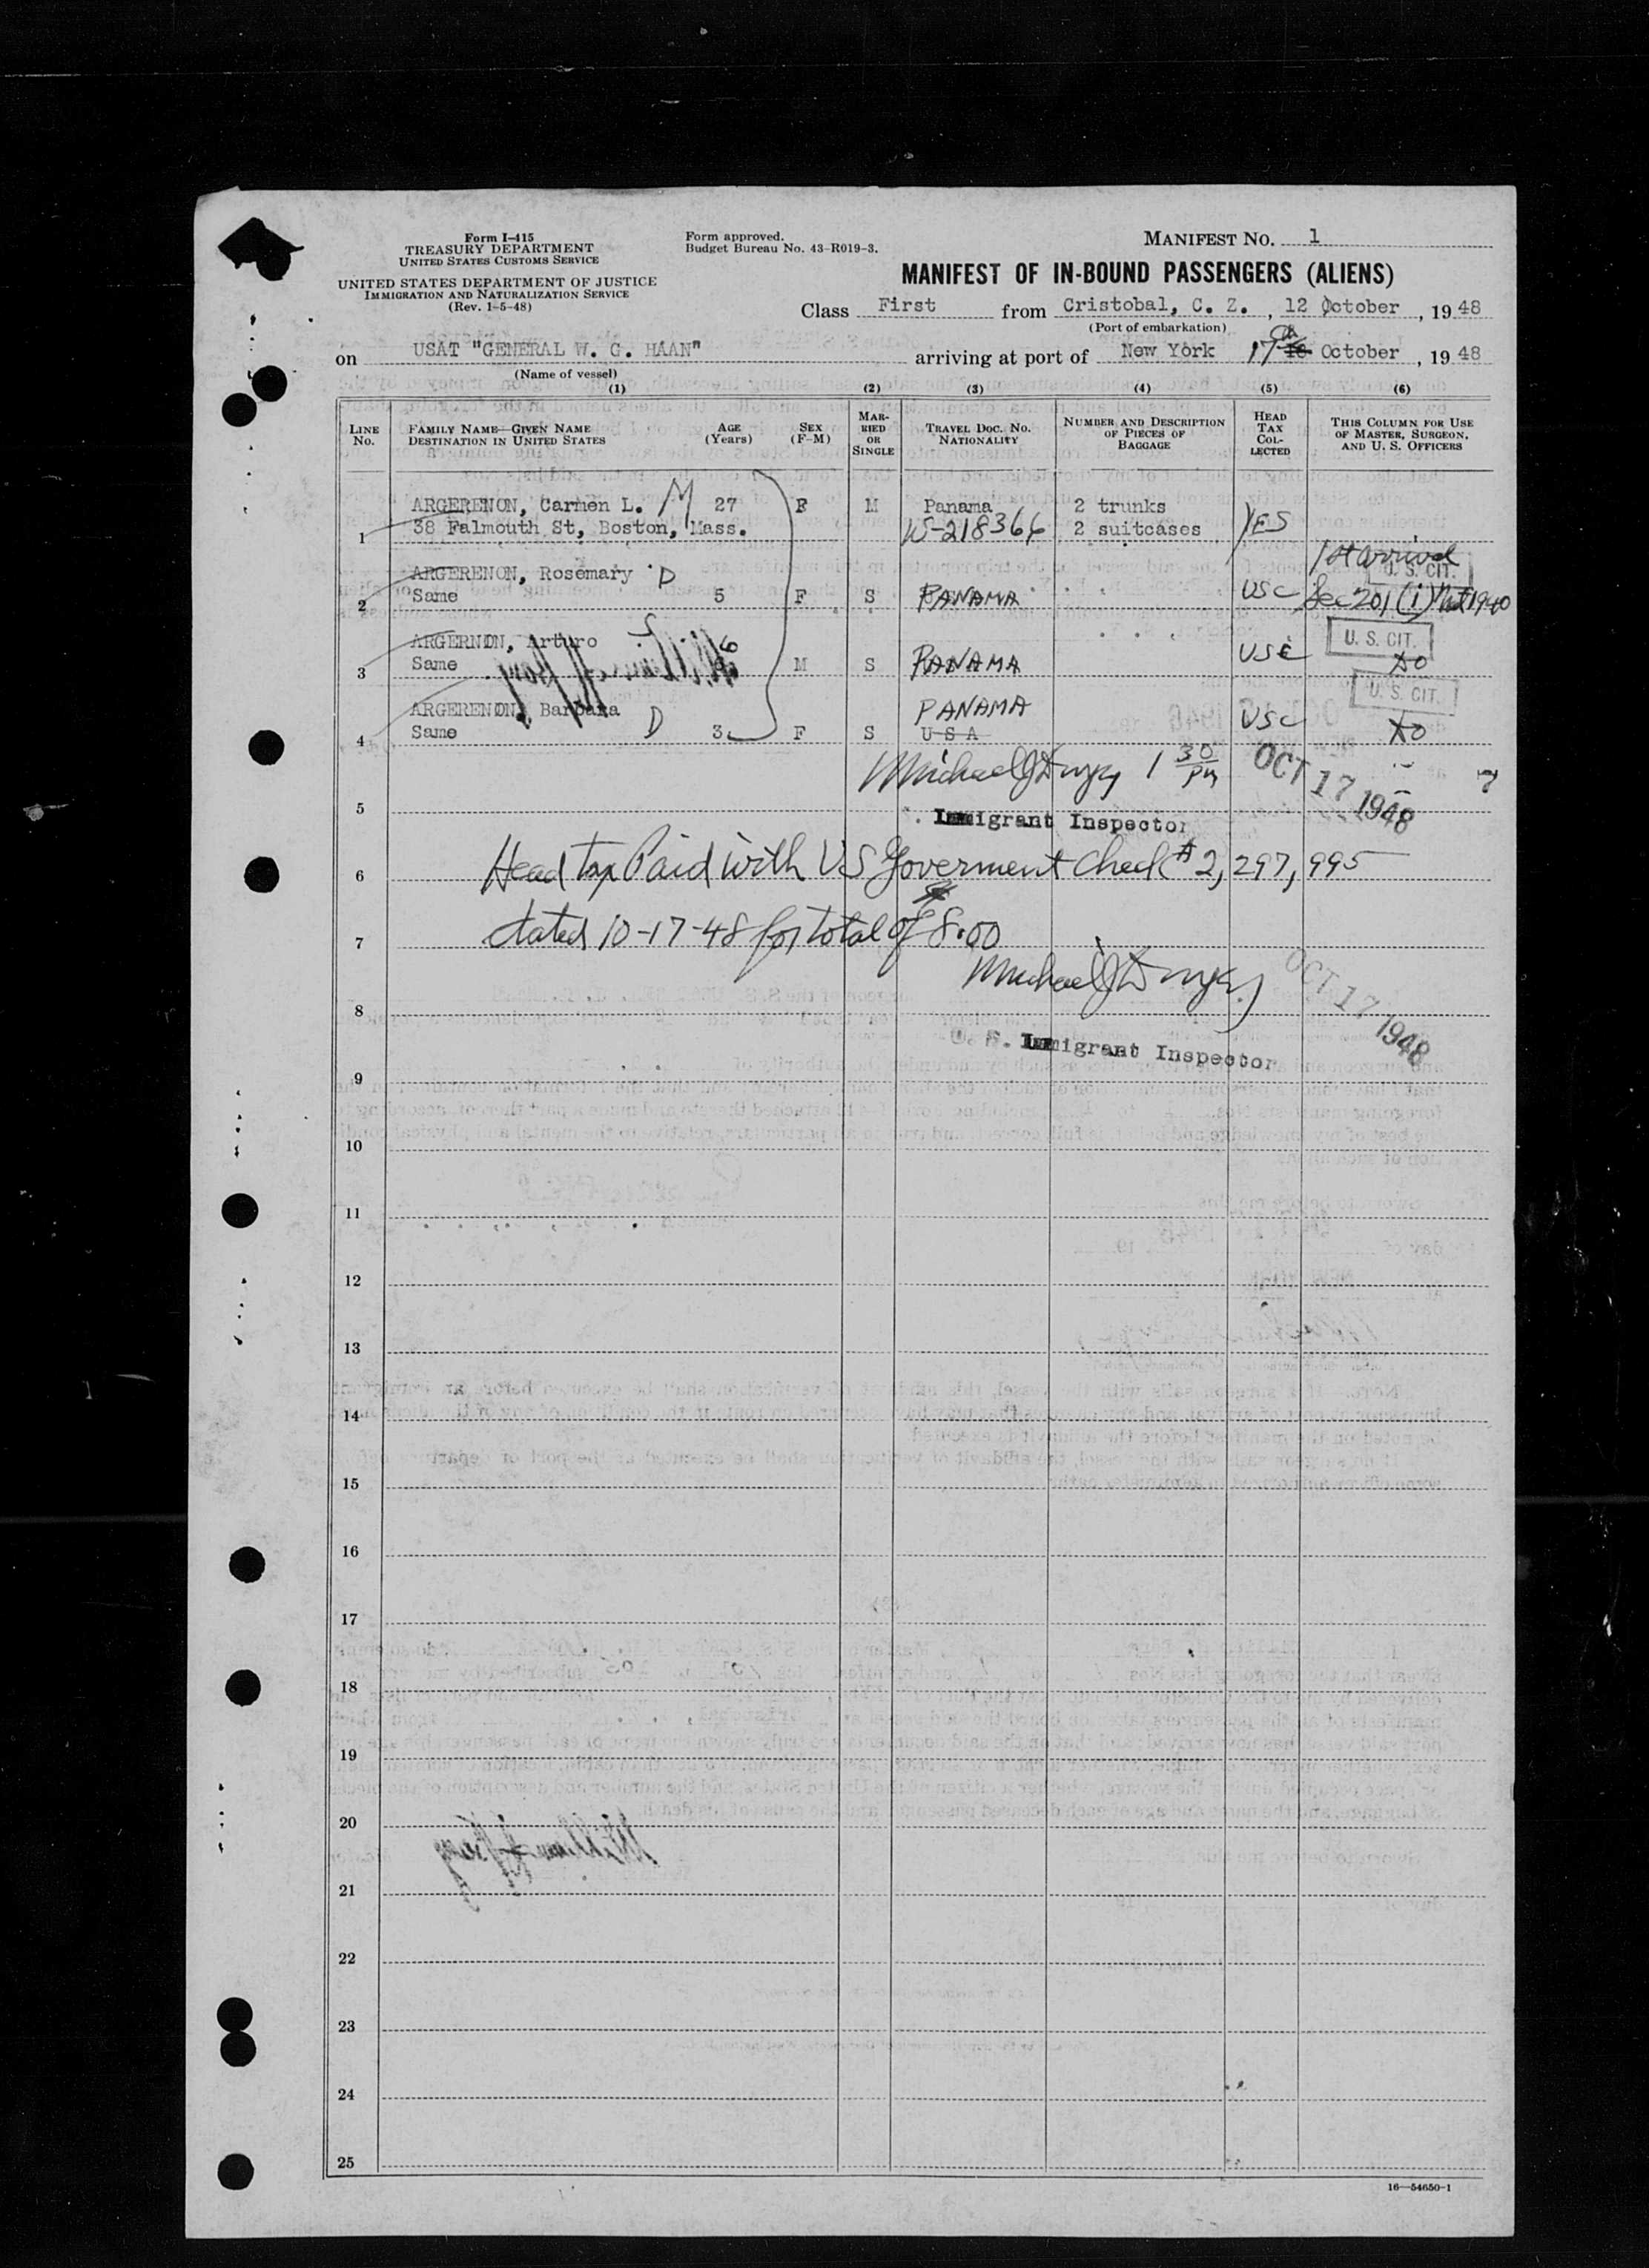 Form I-415
TREASURY DEPARTMENT
UNITED STATES CUSTOMS SERVICE
UNITED STATES DEPARTMENT OF JUSTICE
IMMIGRATION AND NATURALIZATION SERVICE
(Rev. 1-5-48)
Form approved.
Budget Bureau No. 43-R019-3.
MANIFEST NO. 1
MANIFEST OF IN-BOUND PASSENGERS (ALIENS)
Class First from Cristobal, C. Z., 12 October, 19 48
(Port of embarkation)
on USAT "GENERAL W. G. HAAN" arriving at port of New York 17 October, 19 48
(Name of vessel)
(1) (2) (3) (4) (5) (6)
LINE No. FAMILY NAME—GIVEN NAME DESTINATION IN UNITED STATES AGE (Years) SEX (F-M) MARRIED OR SINGLE TRAVEL DOC. NO. NATIONALITY NUMBER AND DESCRIPTION OF PIECES OF BAGGAGE HEAD TAX COLLECTED THIS COLUMN FOR USE OF MASTER, SURGEON, AND U. S. OFFICERS
ARGERENON, Carmen L. M 27 F M Panama 2 trunks
1 38 Falmouth St, Boston, Mass. W-218366 2 suitcases YES
1st arrival
ARGERENON, Rosemary D U. S. CIT.
2 Same 5 F S PANAMA USC Sec 201 (i) Nat 1940
ARGERNON, Arturo S 6 U. S. CIT.
3 Same M S PANAMA USC do
ARGERENON, Barbara D PANAMA U. S. CIT.
4 Same 3 F S USA USC do
1 30 PM OCT 17 1948
5 Immigrant Inspector
6 Head tax Paid with US Goverment Check # 2,297,995
7 dated 10-17-48 for total of 8.00
8 OCT 17 1948
U. S. Immigrant Inspector
9
10
11
12
13
14
15
16
17
18
19
20
21
22
23
24
25
16—54650-1